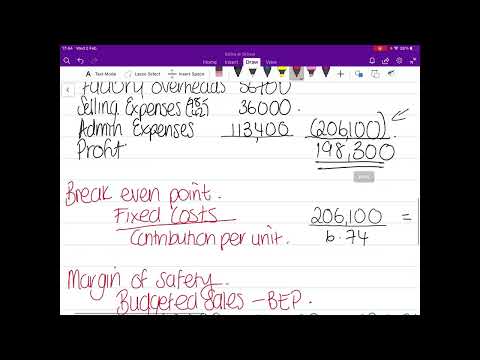 17:44 Wed 2 Feb
Home Insert Draw View
Text Mode Lasso Select Insert Space
Factory overheads 56700
Selling Expenses
36000
Admin Expenses 113,400 (206,100)
Profit 198,300
Break even point.
Fixed Costs 206,100 =
Contribution per unit. 6.74
Margin of safety.
Budgeted Sales - BEP.